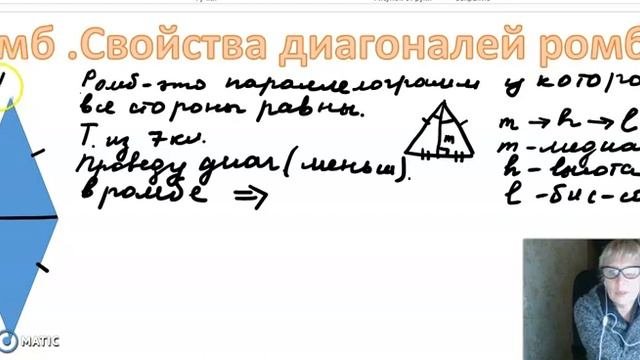 мб .Свойства диагоналей ромб
Ромб - это параллелограмм у которо
все стороны равны.
Т. из 7 кл.
Проведу диаг (меньш).
в ромбе ⇒
m
m → h → l
m - медиа
h - высота
l - бис-са
MATIC